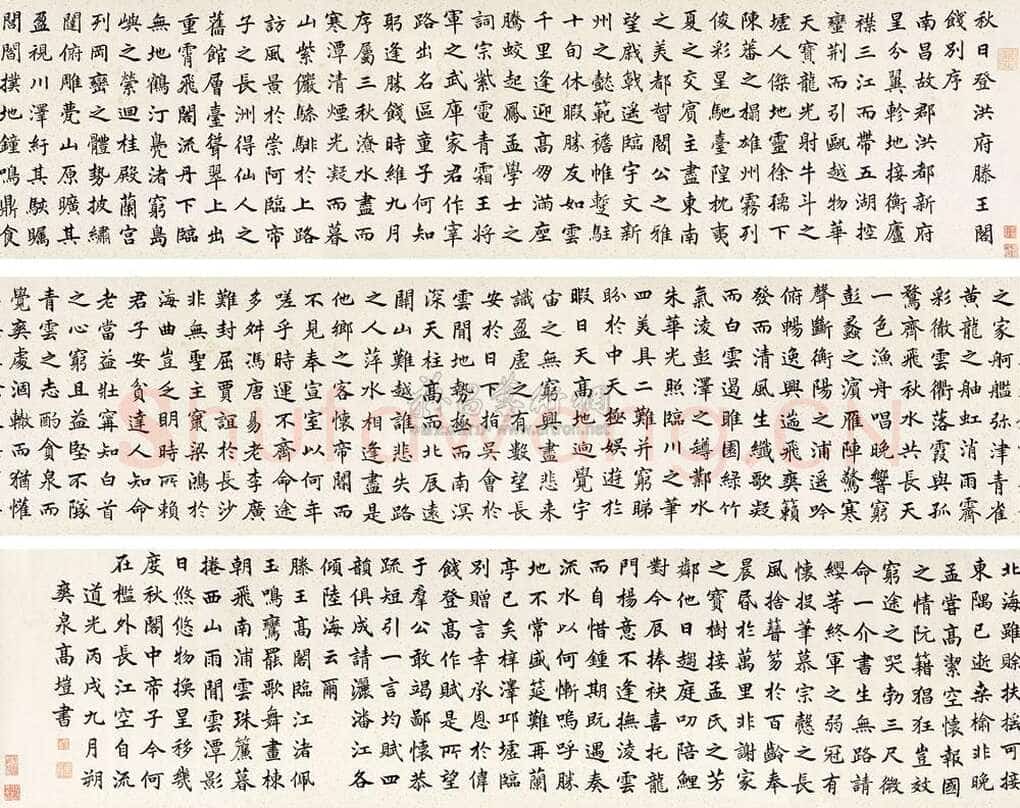 秋日登洪府滕王閣
餞別序
南昌故郡洪都新府
星分翼軫地接衡廬
襟三江而帶五湖控
蠻荆而引甌越物華
天寶龍光射牛斗之
墟人傑地靈徐孺下
陳蕃之榻雄州霧列
俊彩星馳臺隍枕夷
夏之交賓主盡東南
之美都督閻公之雅
望棨戟遥臨宇文新
州之懿範襜帷暫駐
十旬休暇勝友如雲
千里逢迎高朋滿座
騰蛟起鳳孟學士之
詞宗紫電青霜王將
軍之武庫家君作宰
路出名區童子何知
躬逢勝餞時維九月
序屬三秋潦水盡而
寒潭清煙光凝而暮
山紫儼驂騑於上路
訪風景於崇阿臨帝
子之長洲得仙人之
舊館層臺聳翠上出
重霄飛閣流丹下臨
無地鶴汀鳧渚窮島
嶼之縈迴桂殿蘭宮
列岡巒之體勢披繡
闥俯雕甍山原曠其
盈視川澤紆其駭矚
閭閻撲地鐘鳴鼎食
之家舸艦弥津青雀
黃龍之舳虹消雨霽
彩徹雲衢落霞與孤
鶩齊飛秋水共長天
一色漁舟唱晚響窮
彭蠡之濱雁陣驚寒
聲斷衡陽之浦遥吟
俯暢逸興遄飛爽籟
發而清風生纖歌凝
而白雲遏睢園綠竹
氣淩彭澤之罇鄴水
朱華光照臨川之筆
四美具二難并窮睇
眄於中天極娛遊於
暇日天高地迥覺宇
宙之無窮興盡悲来
識盈虛之有數望長
安於日下指吳會於
雲間地勢極而南溟
深天柱高而北辰遠
關山難越誰悲失路
之人萍水相逢盡是
他鄉之客懷帝閽而
不見奉宣室以何年
嗟乎時運不齊命途
多舛馮唐易老李廣
難封屈賈誼於長沙
非無聖主竄梁鴻於
海曲豈乏明時所賴
君子安貧達人知命
老當益壯寧知白首
之心窮且益堅不墜
青雲之志酌貪泉而
覺爽處涸轍而猶懽
北海雖賒扶搖可接
東隅已逝桑榆非晚
孟嘗高潔空懷報國
之情阮籍猖狂豈效
窮途之哭勃三尺微
命一介書生無路請
纓等終軍之弱冠有
懷投筆慕宗慤之長
風捨簪笏於百齡奉
晨昏於萬里非謝家
之寶樹接孟氏之芳
鄰他日趨庭叨陪鯉
對今辰捧袂喜托龍
門楊意不逢撫淩雲
而自惜鍾期既遇奏
流水以何慚嗚呼勝
地不常盛筵難再蘭
亭已矣梓澤邱墟臨
別贈言幸承恩於偉
餞登高作賦是所望
于羣公敢竭鄙懷恭
疏短引一言均賦四
韻俱成請灑潘江各
傾陸海云爾
滕王高閣臨江渚佩
玉鳴鸞罷歌舞畫棟
朝飛南浦雲珠簾暮
捲西山雨閒雲潭影
日悠悠物換星移幾
度秋閣中帝子今何
在檻外長江空自流
道光丙戌九月朔
爽泉高塏書
Shufawang.cn